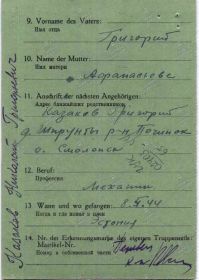 9. Vorname des Vaters:
Имя отца
Григорий
10. Name der Mutter:
Имя матери
Афанасьевс
11. Anschrift der nächsten Angehörigen:
Адрес ближайших родственников
Казаков Григорий
р-н Починок
о. Смоленск
12. Beruf:
Профессия
Механик
13. Wann und wo gefangen:
Когда и где попал в плен
8.X.44
Эстония
14. Nr. der Erkennungsmarke des eigenen Truppenteils:
Matrikel-Nr.
Номер в собственной части
Казаков Григорьевич